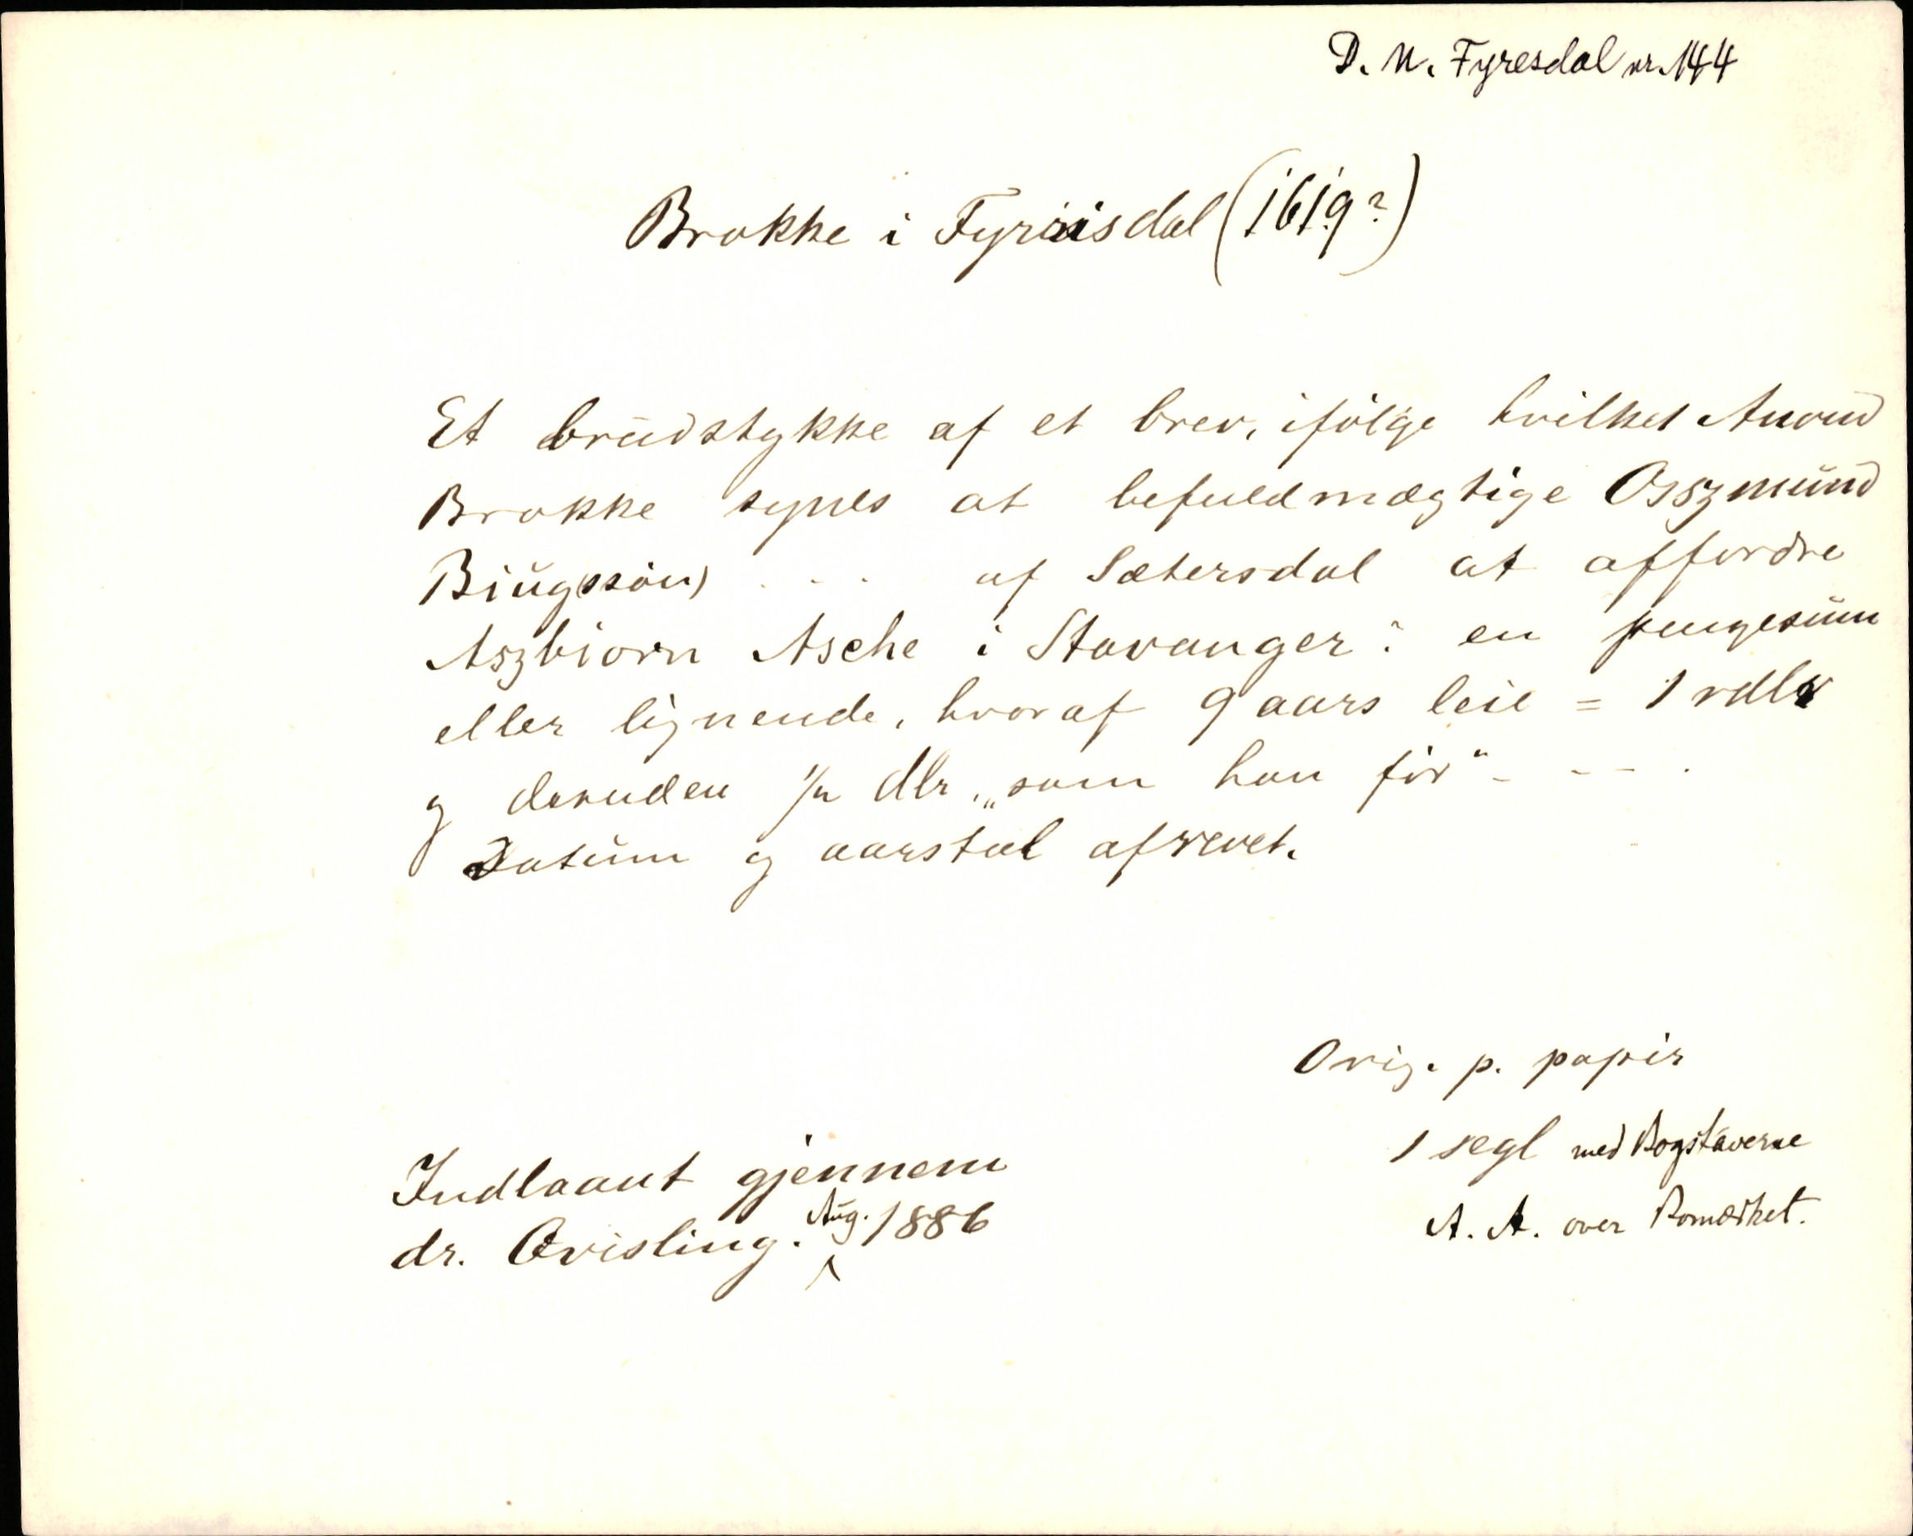 D. N. Fyresdal nr. 144
Brokke i Fyriisdal (1619?)
Et brudstykke af et brev, ifølge hvilket Anvud
Brokke synes at befuldmægtige Osszmund
Biug(ssøn) . . . af Sætersdal at affordre
Aszbiorn Asche i Stavanger? en pengesum
eller lignende, hvoraf 9 aars leie = 1 rdlr
og desuden ½ dlr. „som han før“ - - - .
Datum og aarstal afrevet.
Orig. p. papir
1 segl med Bogstaverne
A. A. over Bomærket.
Indlaant gjennem
dr. Qvisling. Aug. 1886